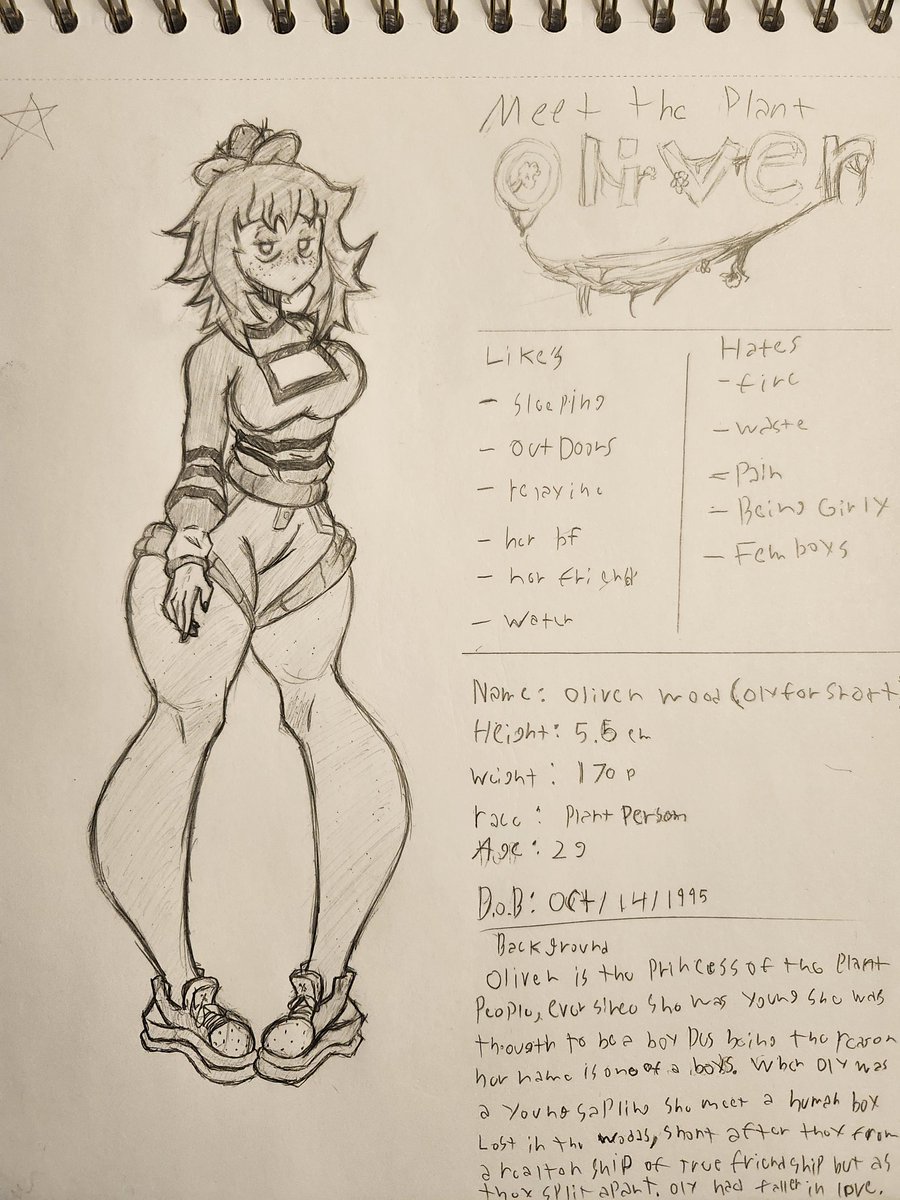 Meet the Plant
Oliver
Like's
- sleeping
- outDoors
- relaxing
- her bf
- her friends
- water
Hates
- fire
- waste
- Pain
- Being Girly
- Femboys
Name: Oliver wood (oly for short)
Height: 5.6 cm
weight: 170 p
race: Plant Person
Age: 29
D.o.B: Oct/14/1995
Background
Oliver is the Princess of the Plant
People, ever since she was young she was
thougth to be a boy Dus being the reason
her name is one of a boys. When Oly was
a young saplin she meet a human boy
Lost in the woods, short after they from
a realtonship of true friendship but as
they split apart. Oly had fallen in love.